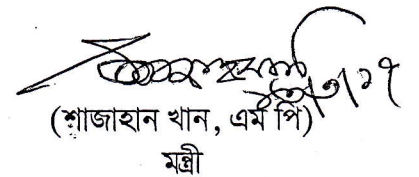 (শাজাহান খান, এম পি)
মন্ত্রী